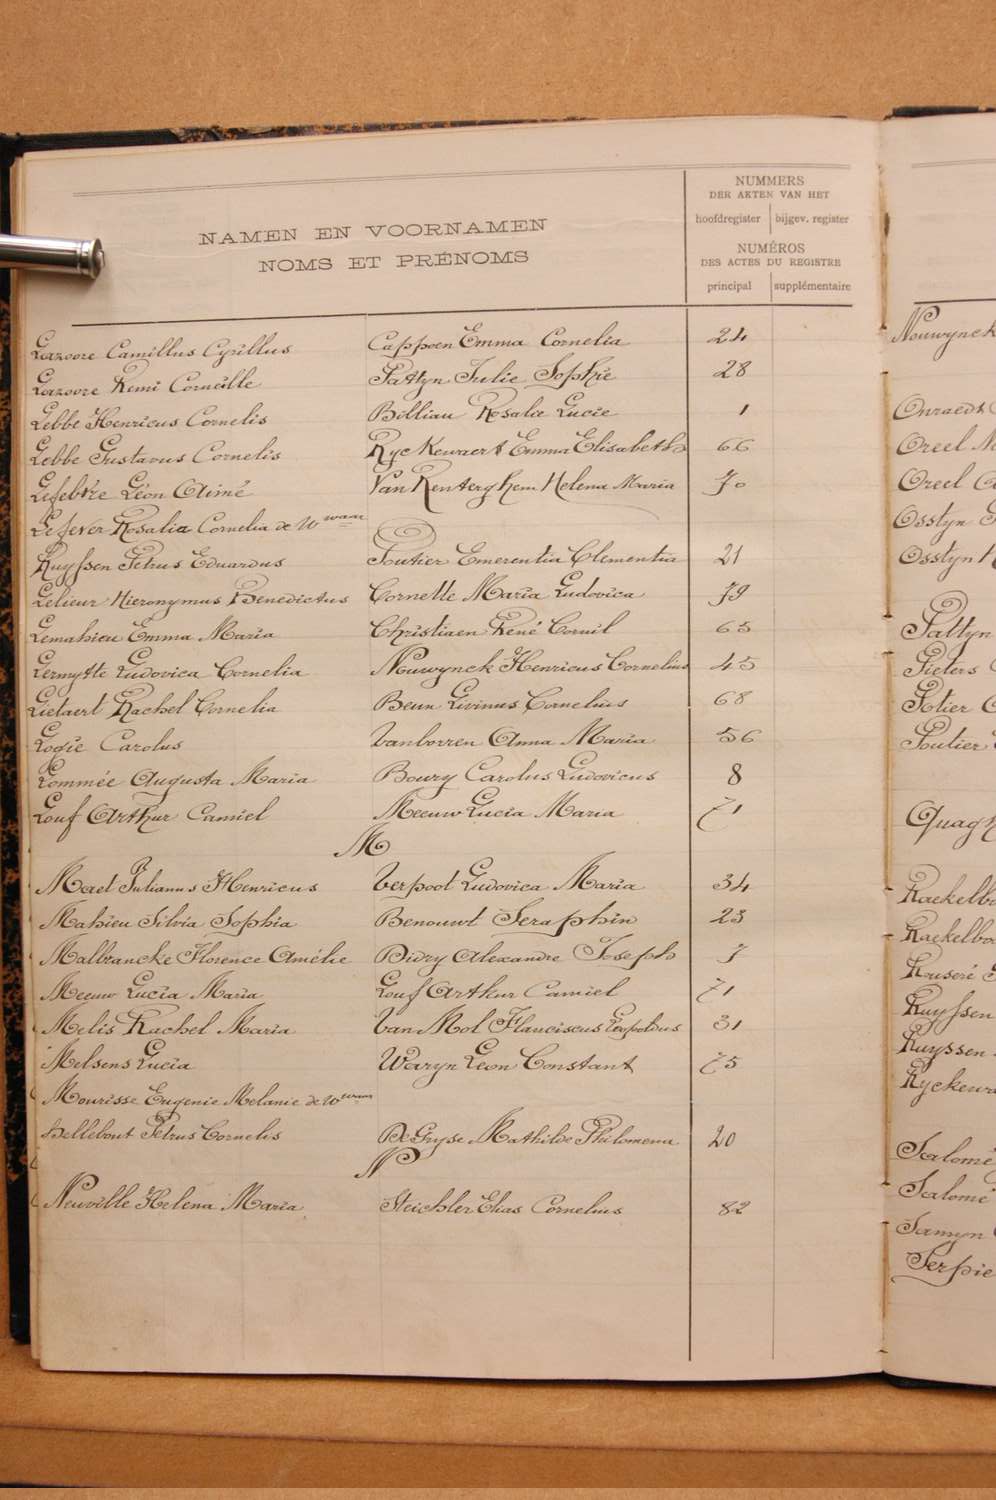 NAMEN EN VOORNAMEN
NOMS ET PRÉNOMS
NUMMERS
DER AKTEN VAN HET
hoofdregister bijgev. register
NUMÉROS
DES ACTES DU REGISTRE
principal supplémentaire
Lazoore Camillus Cyrillus Cappoen Emma Cornelia 24
Lazoore Remi Corneille Pattyn Julie Sophie 28
Lebbe Henricus Cornelis Billiau Rosalie Lucie 1
Lebbe Gustavus Cornelis Ryckewaert Emma Elisabeth 66
Lefebvre Léon Aimé Van Renterghem Helena Maria 70
Lefever Rosalia Cornelia de Wwe van
Ruyssen Petrus Eduardus Poutier Emerentia Clementia 21
Lelieur Hieronymus Benedictus Cornette Maria Ludovica 79
Lemahieu Emma Maria Christiaen René Cornil 65
Lermytte Ludovica Cornelia Nouwynck Henricus Cornelius 45
Lietaert Rachel Cornelia Beun Livinus Cornelius 68
Logie Carolus Vanborren Anna Maria 56
Lommée Augusta Maria Boury Carolus Ludovicus 8
Louf Arthur Camiel Meeuw Lucia Maria 71
M
Maet Julianus Henricus Verpoot Ludovica Maria 34
Mahieu Silvia Sophia Benouwt Seraphin 23
Malbrancke Florence Amélie Didry Alexandre Joseph 7
Meeuw Lucia Maria Louf Arthur Camiel 71
Melis Rachel Maria Van Mol Franciscus Leopoldus 31
Melsens Lucia Waryn Leon Constant 75
Mourisse Eugenie Melanie de Wwe van
Hellebout Petrus Cornelis De Gryse Mathilde Philomena 20
N
Neuville Helena Maria Steichler Elias Cornelius 82
Nouwynck
Onraedt
Oreel
Oreel
Osstyn
Osstyn
Pattyn
Pieters
Potier
Poutier
Quagh
Raekelbo
Raekelbo
Rouseré
Ruyssen
Ruyssen
Ryckewa
Salomé
Salomé
Samyn
Serpie